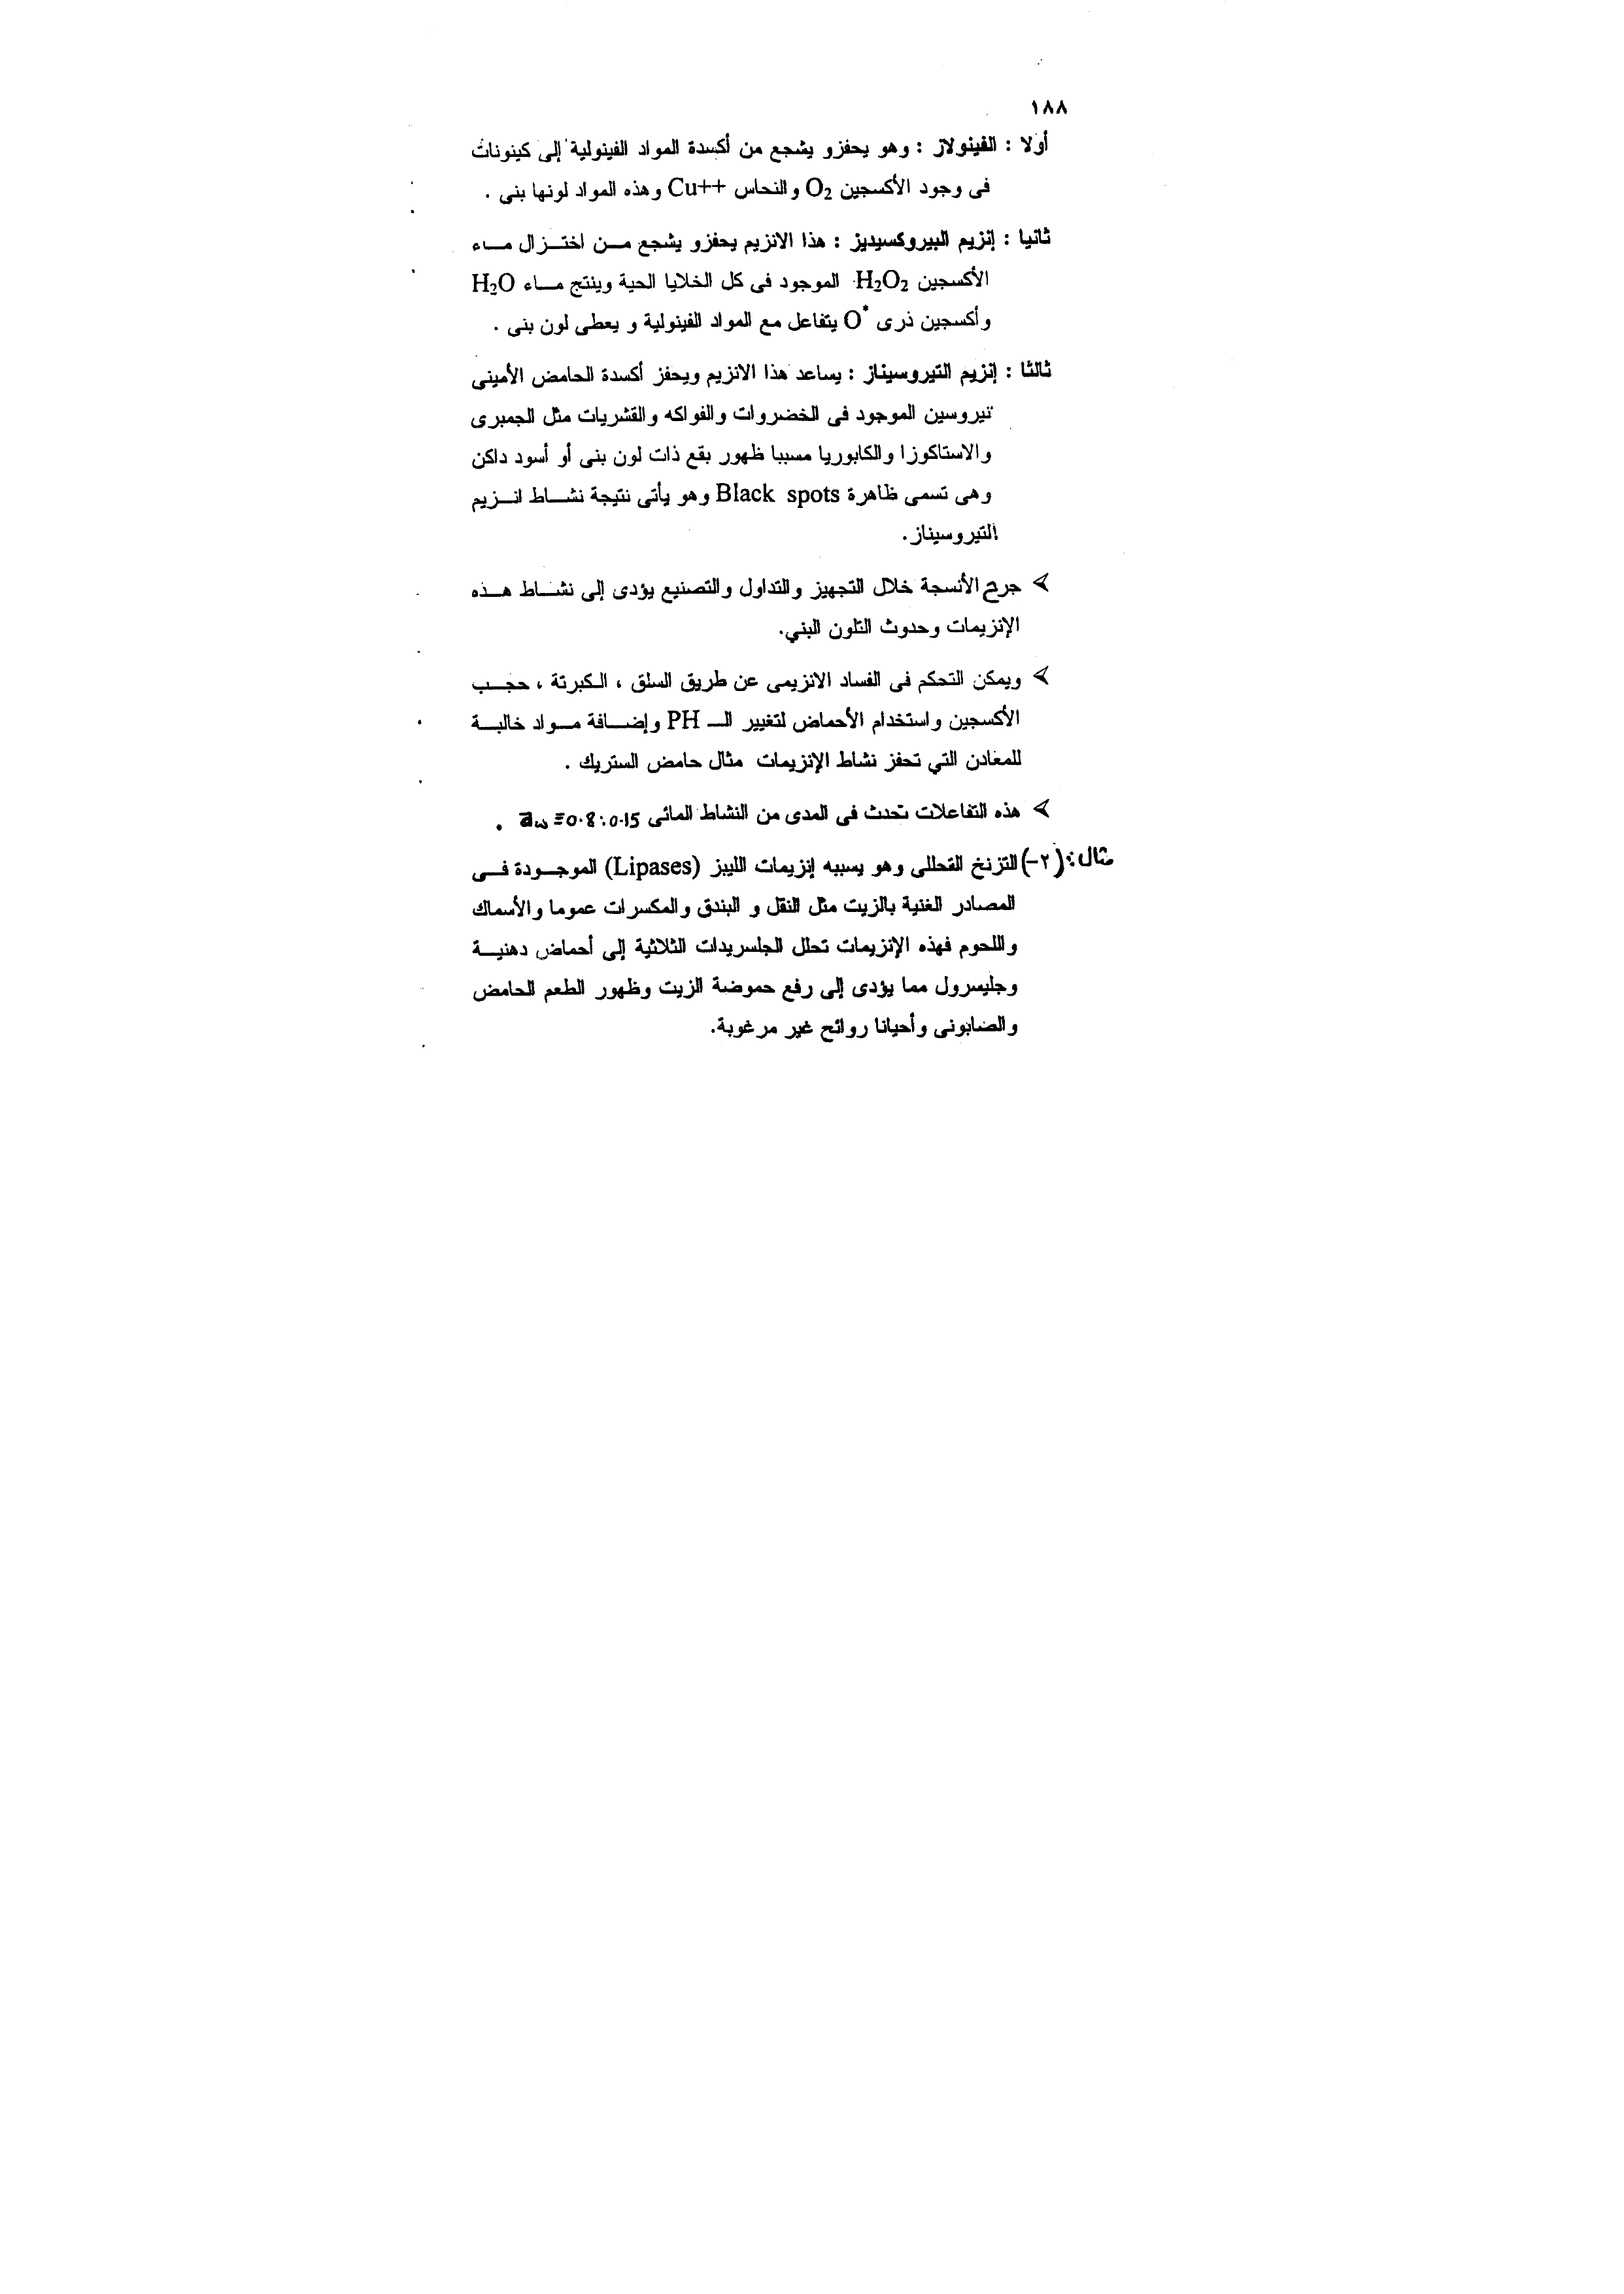 ١٨٨
أولا : الفينولاز : وهو يحفزو يشجع من أكسدة المواد الفينولية إلى كينونات
فى وجود الأكسجين O₂ والنحاس Cu++ وهذه المواد لونها بنى .
ثانيا : إنزيم البيروكسيديز : هذا الانزيم يحفزو يشجع مـن اختـزال مـاء
الأكسجين H₂O₂ الموجود فى كل الخلايا الحية وينتج مـاء H₂O
وأكسجين ذرى O* يتفاعل مع المواد الفينولية و يعطى لون بنى .
ثالثا : إنزيم التيروسيناز : يساعد هذا الانزيم ويحفز أكسدة الحامض الأمينى
تيروسين الموجود فى الخضروات والفواكه والقشريات مثل الجمبرى
والاستاكوزا والكابوريا مسببا ظهور بقع ذات لون بنى أو أسود داكن
وهى تسمى ظاهرة Black spots وهو يأتى نتيجة نشـاط انـزيم
التيروسيناز.
⮘ جرح الأنسجة خلال التجهيز والتداول والتصنيع يؤدى إلى نشـاط هـذه
الإنزيمات وحدوث التلون البني.
⮘ ويمكن التحكم فى الفساد الانزيمى عن طريق السلق ، الكبرتة ، حجـب
الأكسجين واستخدام الأحماض لتغيير الـ PH وإضـافة مـواد خالبـة
للمعادن التي تحفز نشاط الإنزيمات مثال حامض الستريك .
⮘ هذه التفاعلات تحدث فى المدى من النشاط المائى aw = 0.8 : 0.15 .
مثال: (٢-) التزنخ التحللى وهو يسببه إنزيمات الليبز (Lipases) الموجـودة فـى
المصادر الغنية بالزيت مثل النقل و البندق والمكسرات عموما والأسماك
واللحوم فهذه الإنزيمات تحلل الجلسريدات الثلاثية إلى أحماض دهنيـة
وجليسرول مما يؤدى إلى رفع حموضة الزيت وظهور الطعم الحامض
والصابونى وأحيانا روائح غير مرغوبة.